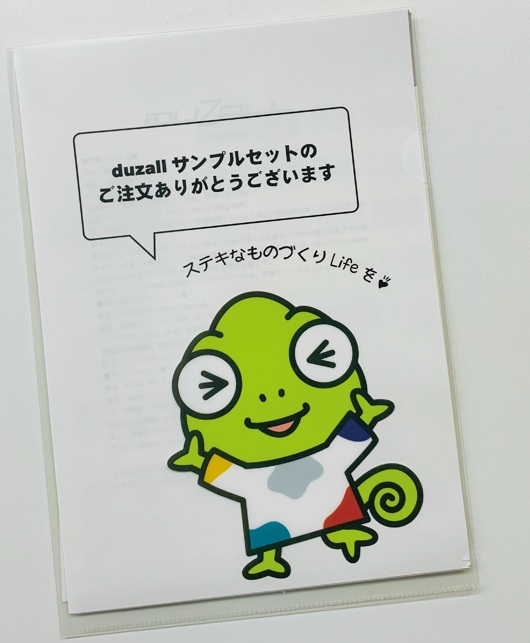 duzall サンプルセットの
ご注文ありがとうございます
ステキなものづくりLifeを